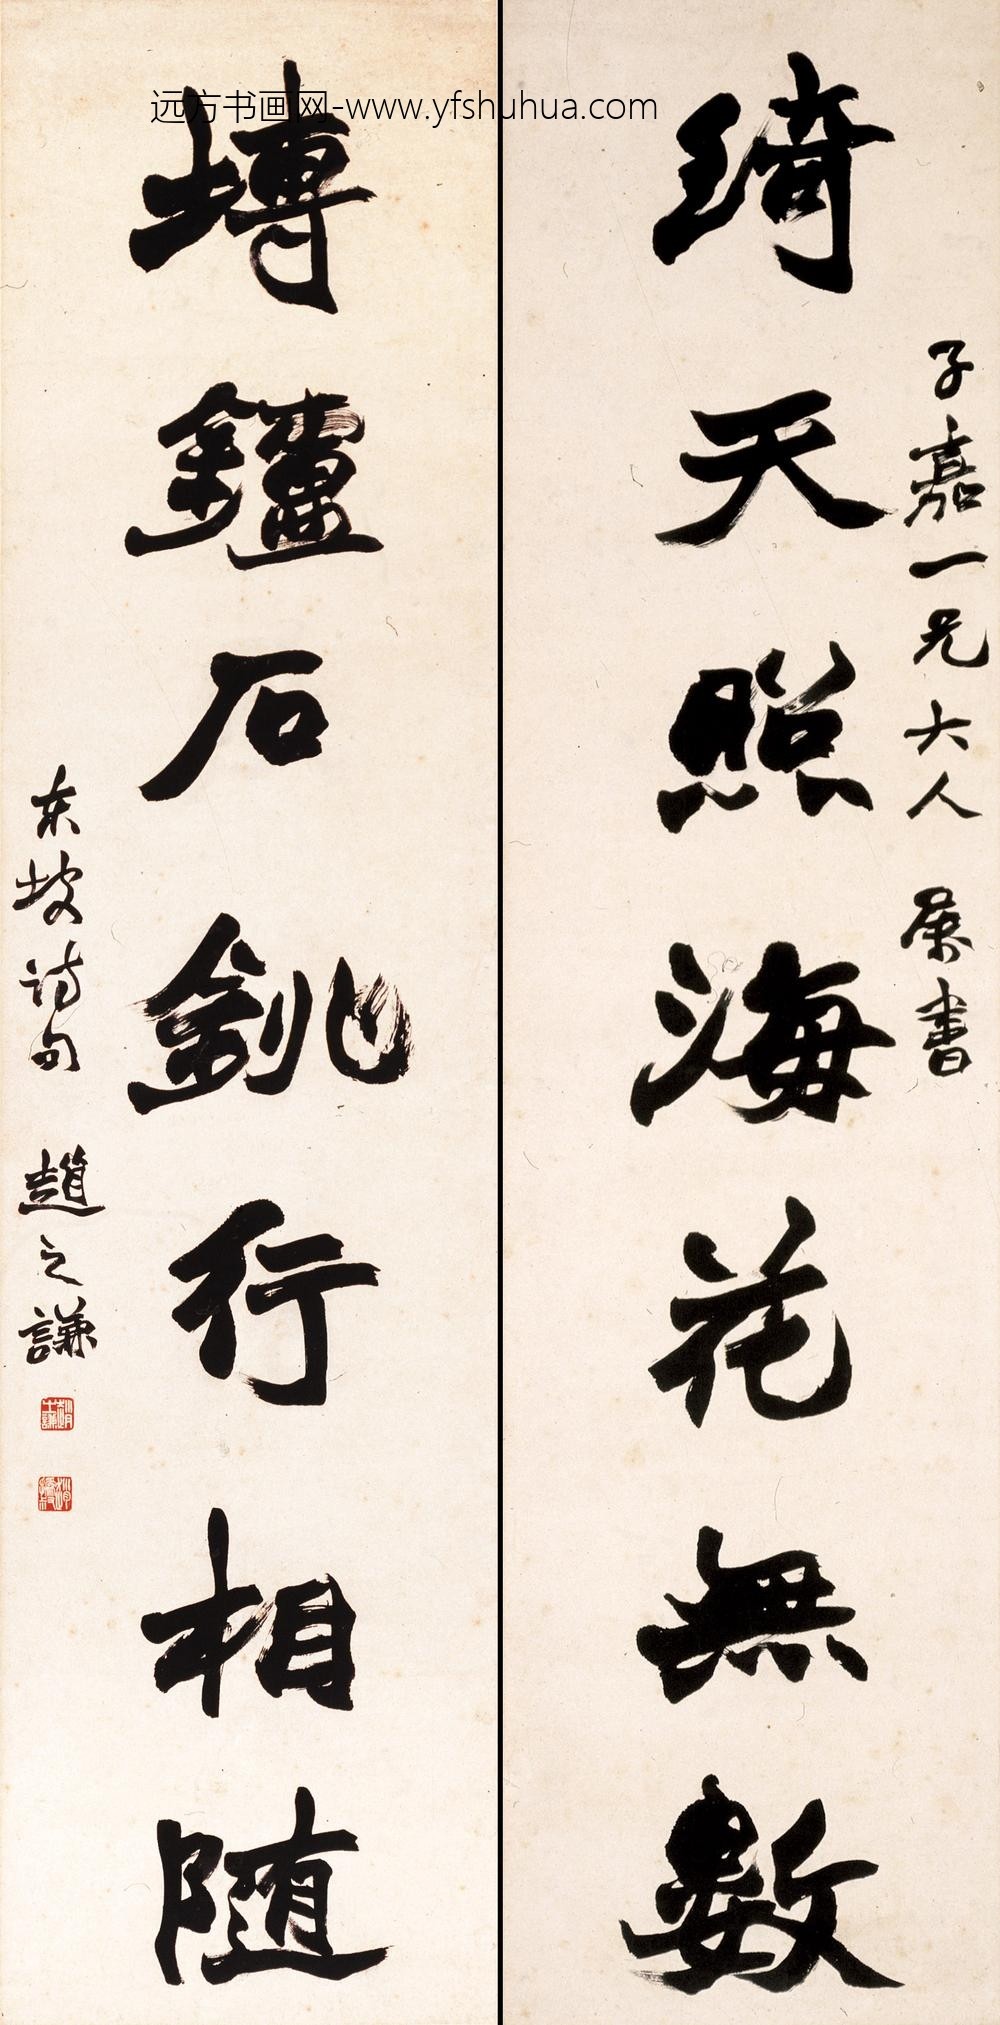 远方书画网-www.yfshuhua.com
子嘉一兄大人 屬書
琦天照海花無數
塼鑪石銚行相隨
東坡詩句 趙之謙